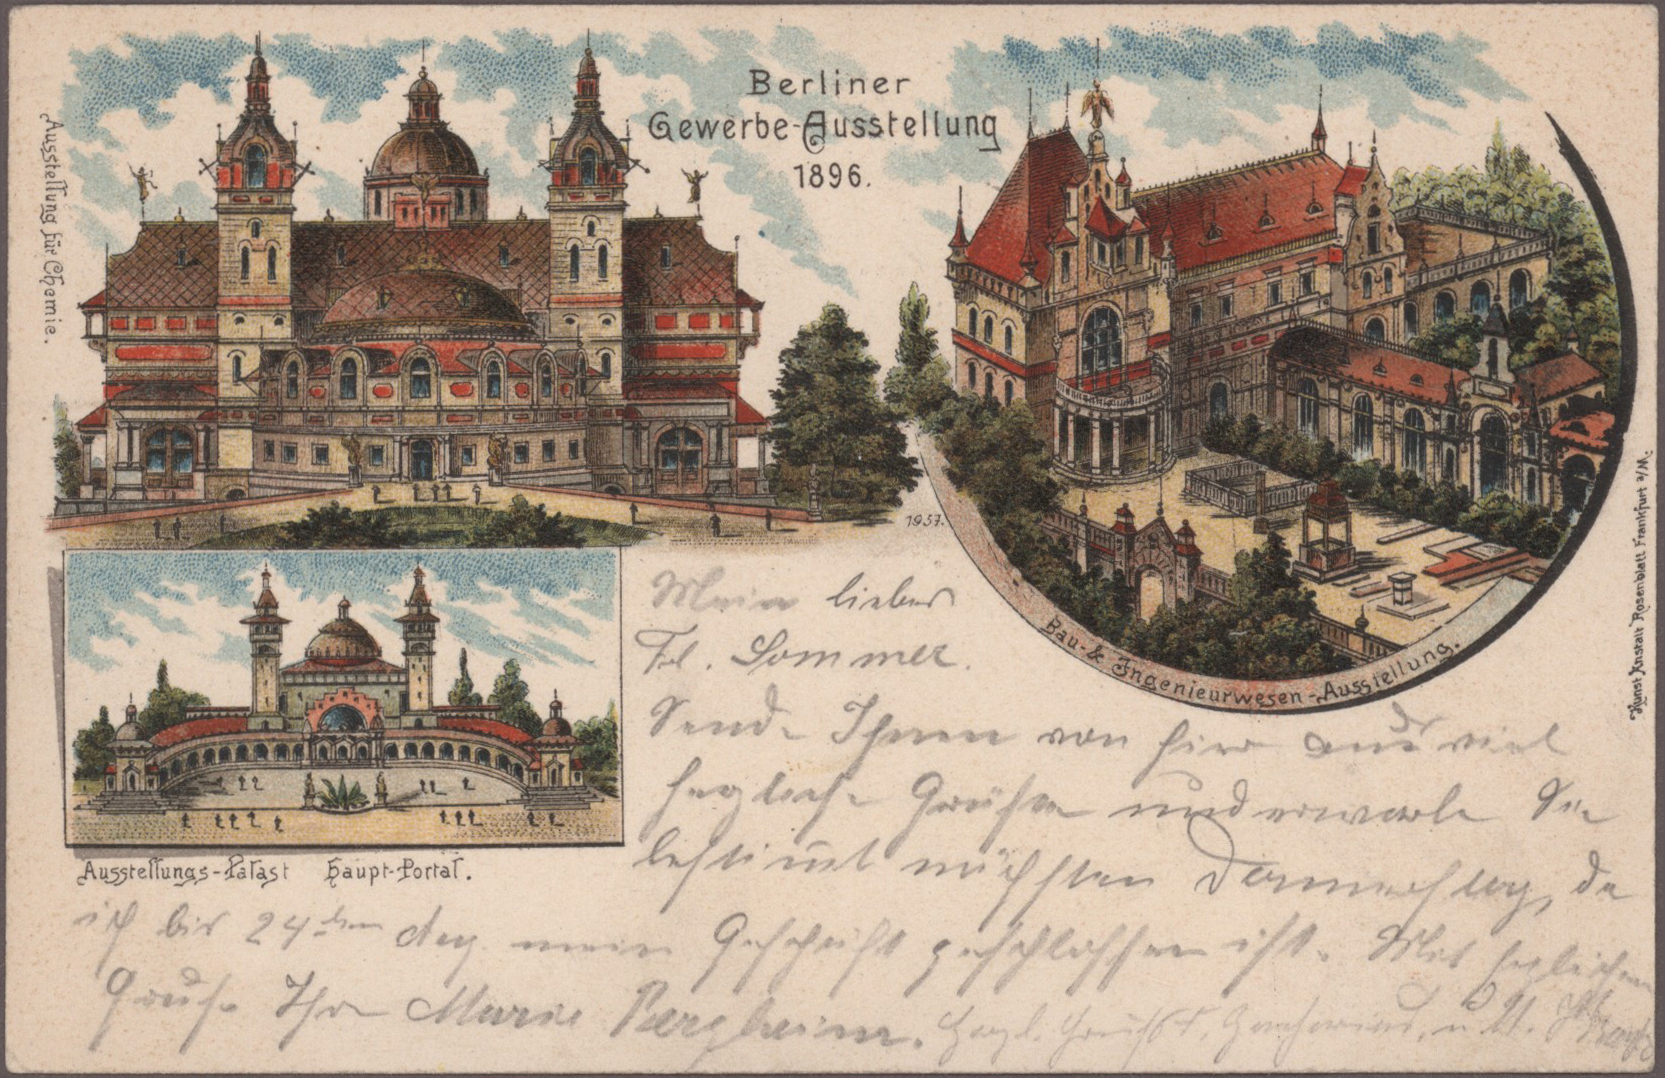 Berliner
Gewerbe-Ausstellung
1896.
Ausstellung für Chemie.
1957.
Bau- & Ingenieurwesen-Ausstellung.
Kunst Anstalt Rosenblatt Frankfurt a/M.
Ausstellungs-Palast Haupt-Portal.
Mein lieber
Frl. Sommer.
Sende Ihnen von hier aus viel
herzliche Grüße und erwarte Sie
bestimmt nächsten Donnerstag, da
ich bis 24ten abg. mein Geschäft geschlossen ist. Mit herzlichem
Gruß Ihre Marie Bergheim. Herzl. Gruß